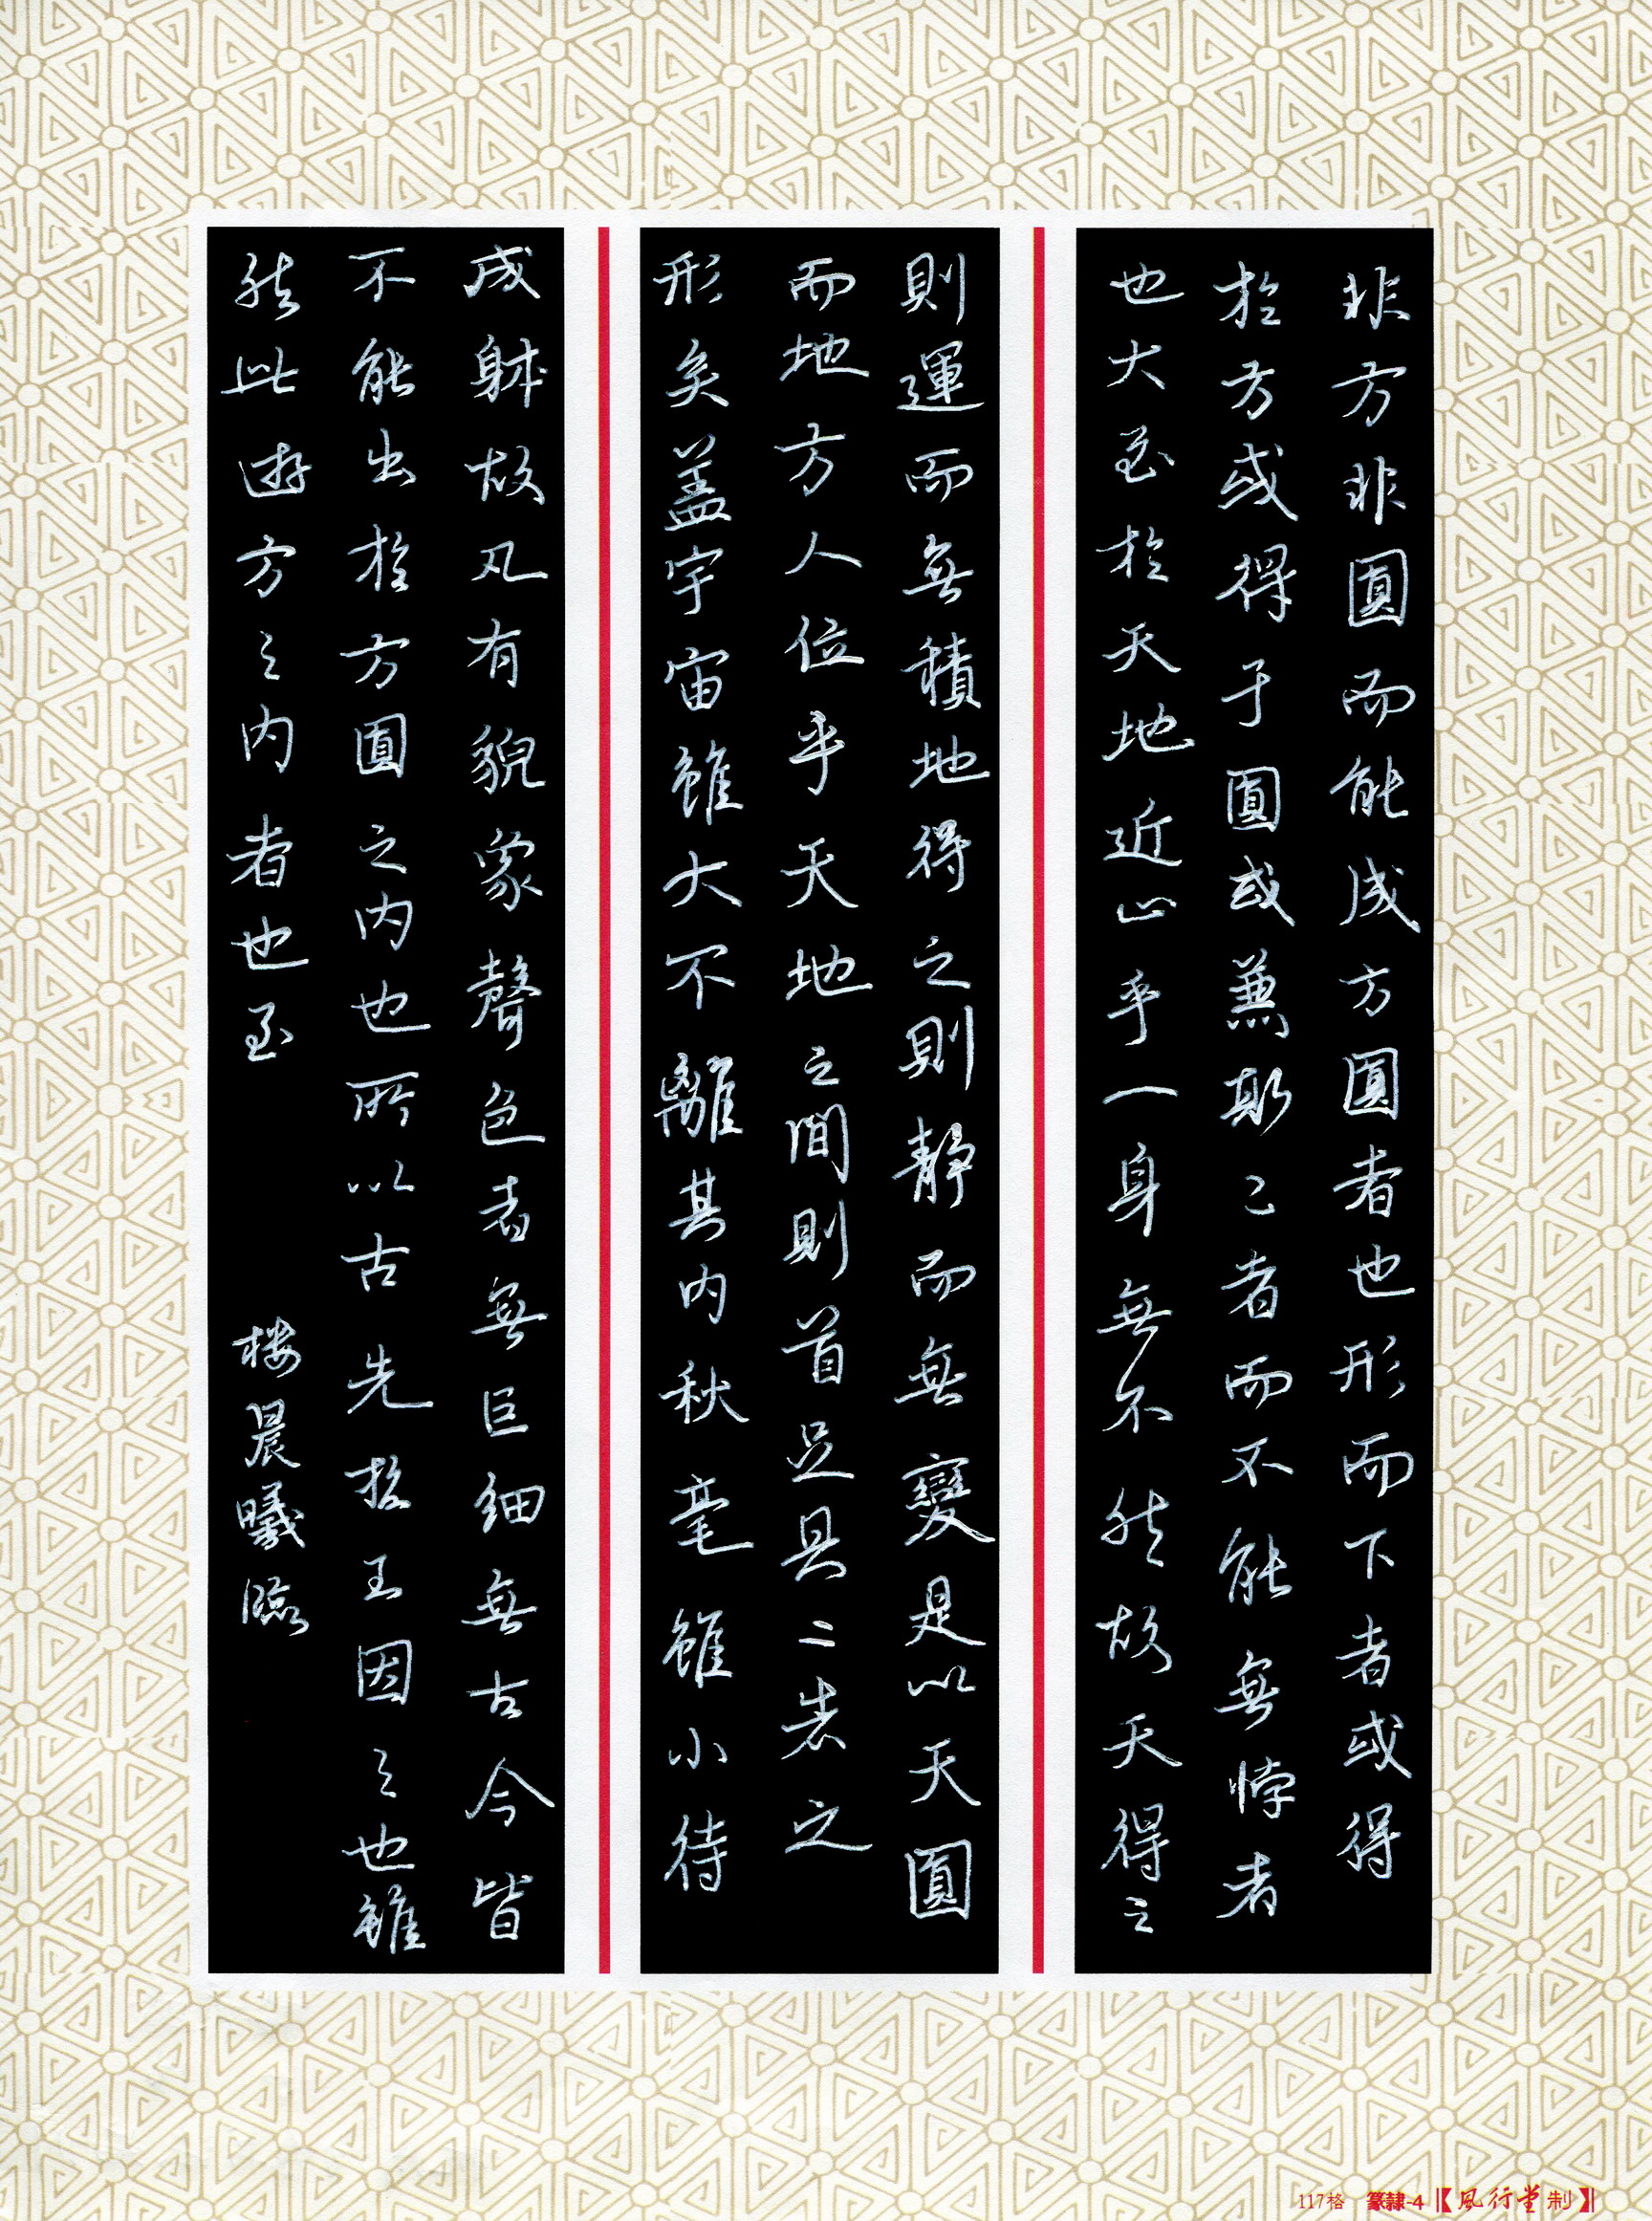 非方非圓而能成方圓者也形而下者或得
於方或得于圓或兼斯二者而不能無悖者
也大至於天地近止乎一身無不然故天得之
則運而無積地得之則靜而無變是以天圓
而地方人位乎天地之間則首足具二者之
形矣盖宇宙雖大不離其内秋毫雖小待
成躰故凡有貌象聲色者無巨細無古今皆
不能出於方圓之内也所以古先哲王因之也雖
然此遊方之内者也至
楼晨曦臨
117格 篆隸-4 【風行堂制】